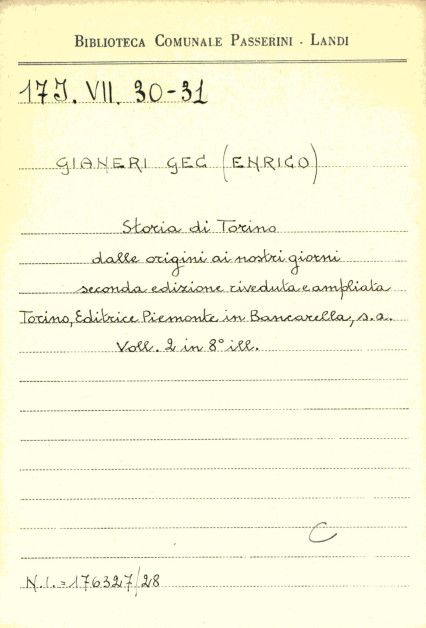 BIBLIOTECA COMUNALE PASSERINI - LANDI
17J. VII. 30-31
GIANERI GEC (ENRICO)
Storia di Torino
dalle origini ai nostri giorni
seconda edizione riveduta e ampliata
Torino, Editrice Piemonte in Bancarella, s.a.
Voll. 2 in 8° ill.
C
N.I. = 176327/28